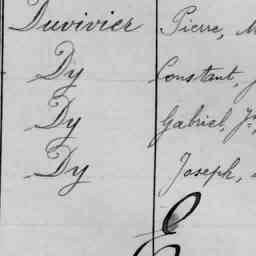 Duvivier Pierre, M
Dy Constant, J
Dy Gabriel, Jn
Dy Joseph,
E